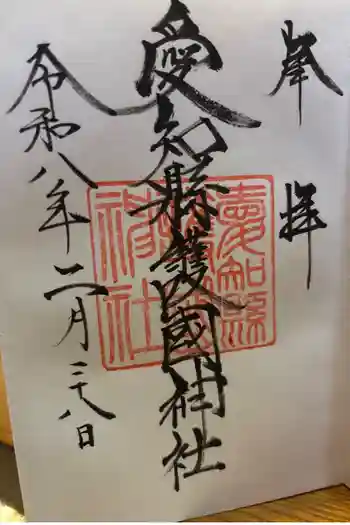 奉拝
愛知縣護國神社
愛知縣護國神社
令和八年二月二十八日